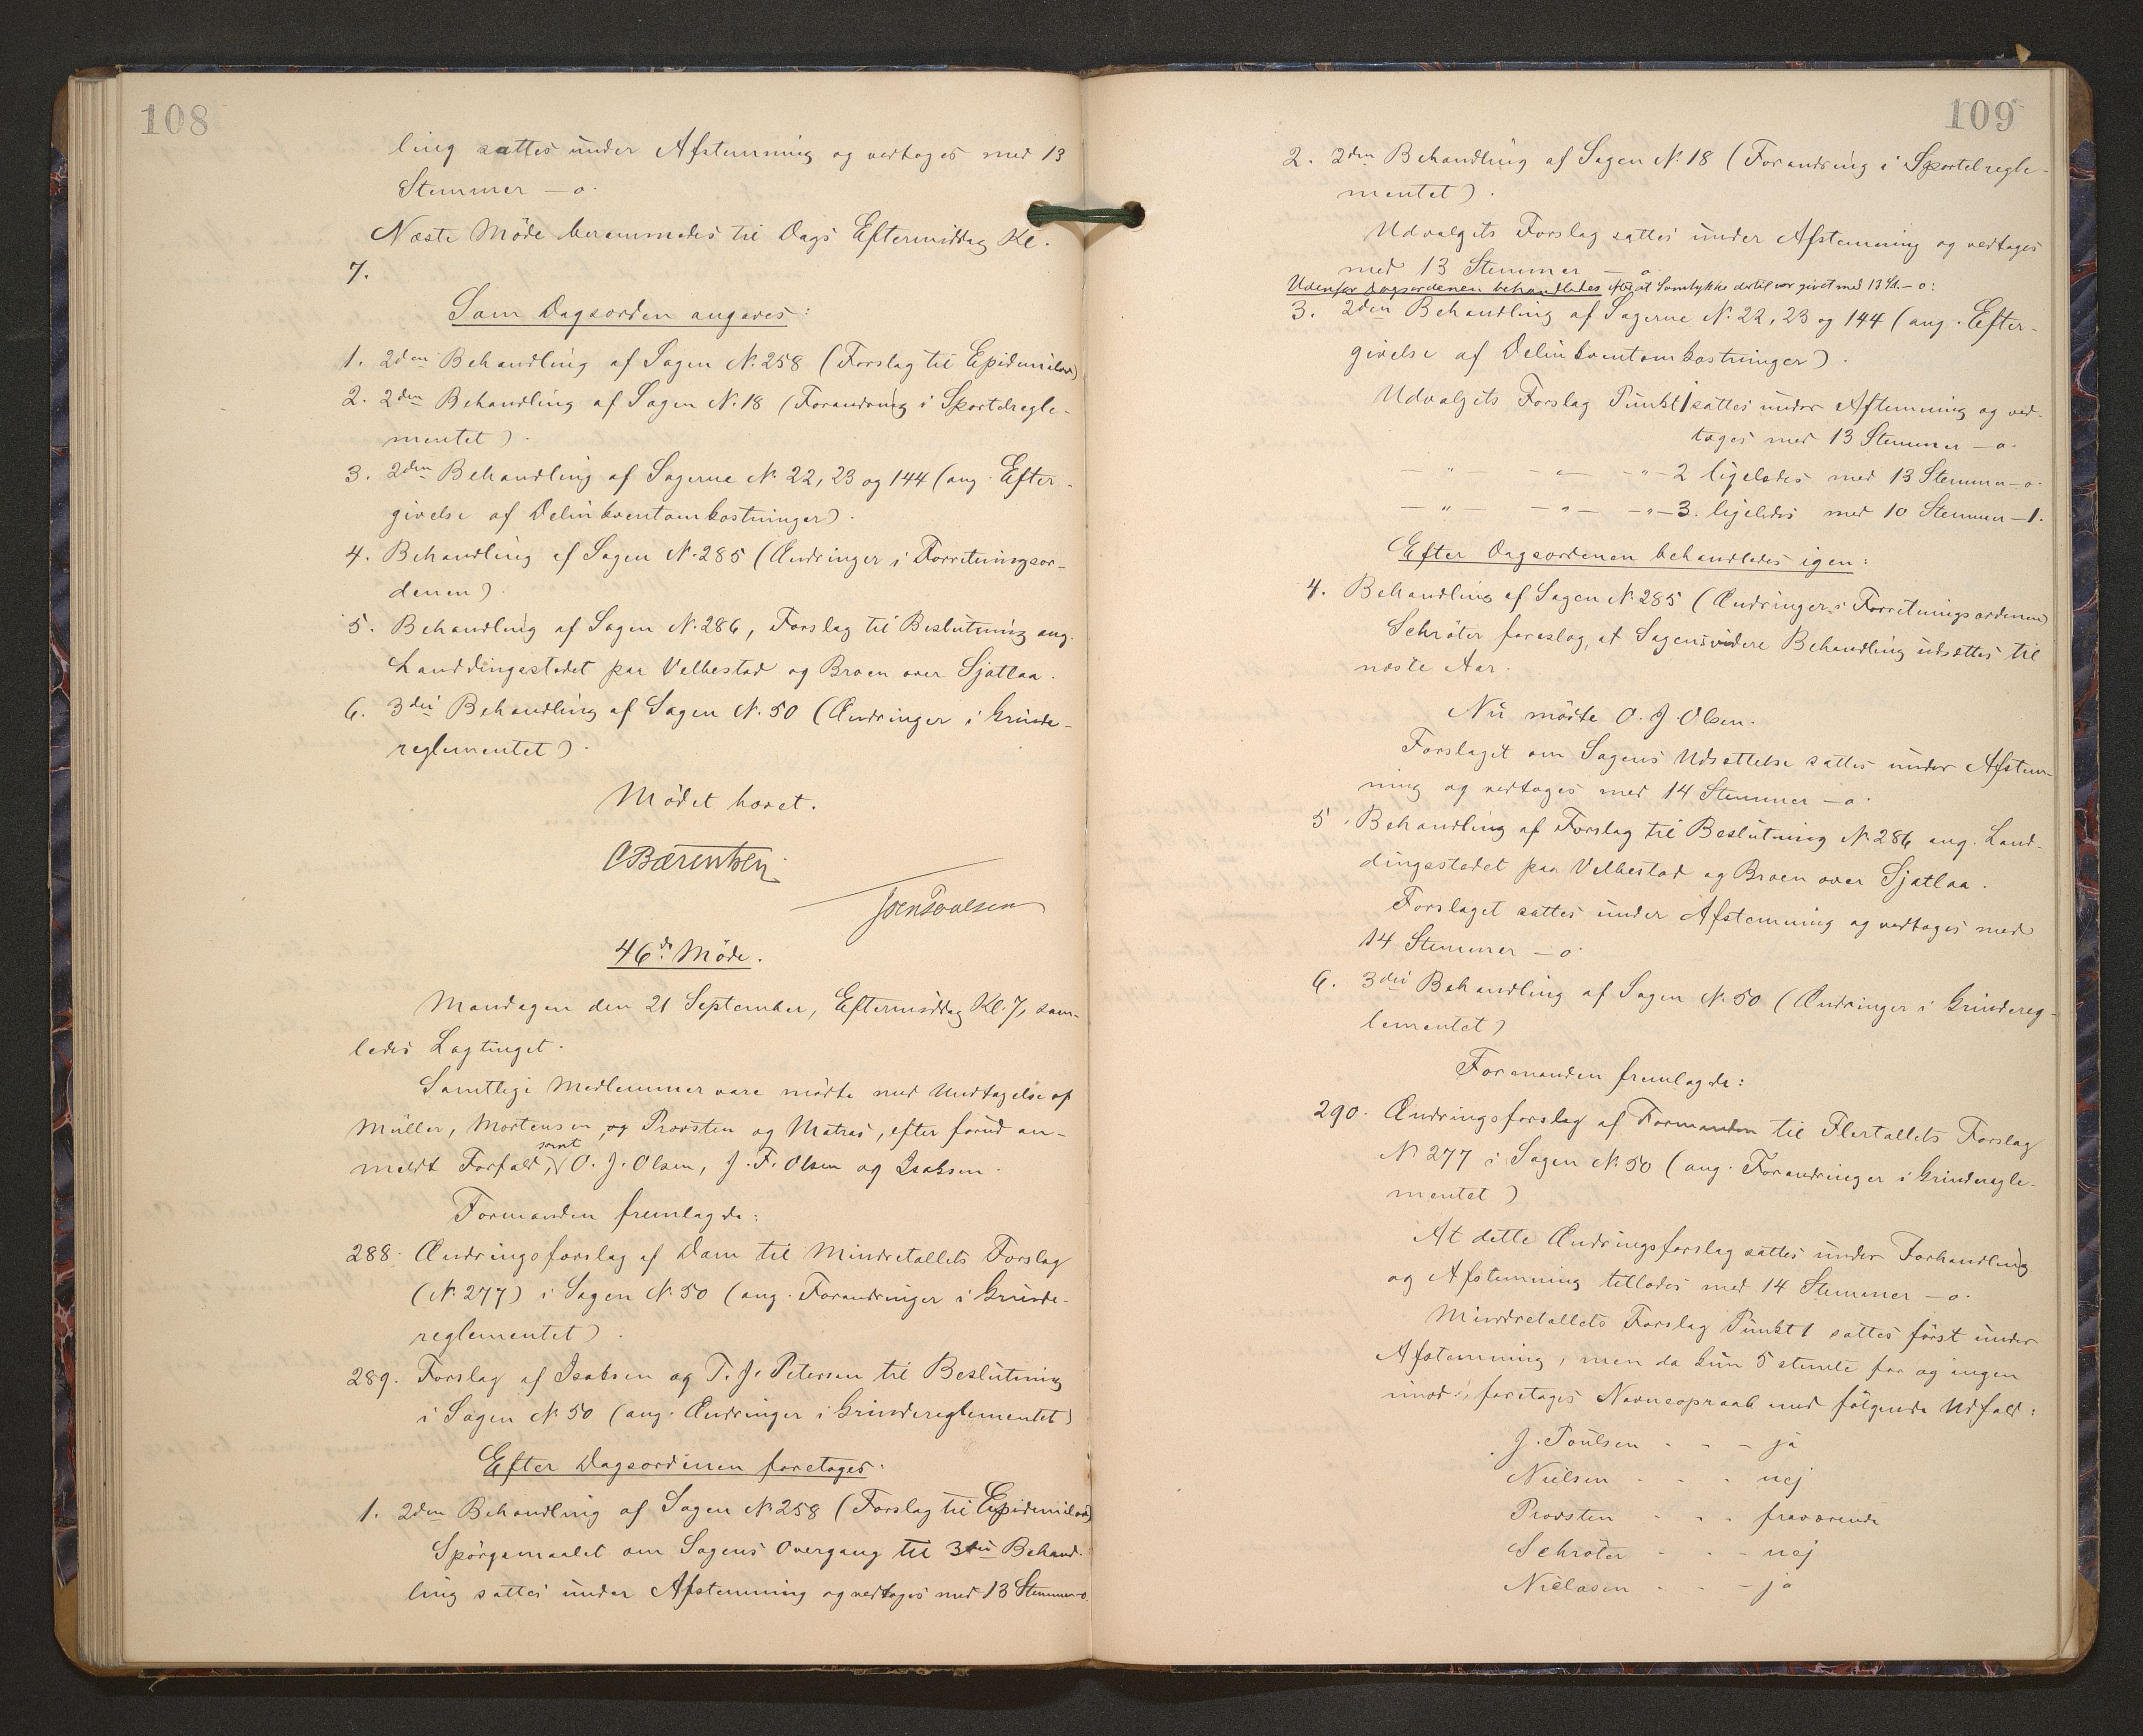 108
ling sattes under Afstemning og vedtoges med 13
Stemmer – o.
Næste Møde berammedes til Dags Eftermiddag Kl.
7.
Som Dagsorden angaves:
1. 2den Behandling af Sagen N. 258 (Forslag til Epidemilov)
2. 2den Behandling af Sagen N. 18 (Forandring i Sportelregle-
mentet).
3. 2den Behandling af Sagerne N. 22, 23 og 144 (ang. Efter-
givelse af Delinkventomkostninger).
4. Behandling af Sagen N. 285 (Ændringer i Forretningsor-
denen).
5. Behandling af Sagen N. 286, Forslag til Beslutning ang.
Landdingestedet paa Velbestad og Broen over Sjatlaa.
6. 3die Behandling af Sagen N. 50 (Ændringer i Grinde-
reglementet).
Mödet hævet.
CBærentsen
JoenPoulsen
46de Møde.
Mandagen den 21 September, Eftermiddag Kl. 7, sam-
ledes Lagtinget.
Samtlige Medlemmer vare mödte med Undtagelse af
Müller, Mortensen og Provsten og Matras, efter forud an-
meldt Forfald, samt O. J. Olsen, J. F. Olsen og Isaksen.
Formanden fremlagde:
288. Ændringsforslag af Dam til Mindretallets Forslag
(N. 277) i Sagen N. 50 (ang. Forandringer i Grinde-
reglementet).
289. Forslag af Isaksen og T. J. Petersen til Beslutning
i Sagen N. 50 (ang. Ændringer i Grindereglementet)
Efter Dagsordenen foretoges:
1. 2den Behandling af Sagen N. 258 (Forslag til Epidemilov)
Spörgsmaalet om Sagens Overgang til 3die Behand-
ling sattes under Afstemning og vedtoges med 13 Stemmer – o.
109
2. 2den Behandling af Sagen N. 18 (Forandring i Sportelregle-
mentet).
Udvalgets Forslag sattes under Afstemning og vedtoges
med 13 Stemmer – o.
Udenfor Dagsordenen behandledes efter at Samtykke dertil var givet med 13 St. – o:
3. 2den Behandling af Sagerne N. 22, 23 og 144 (ang. Efter-
givelse af Delinkventomkostninger).
Udvalgets Forslag Punkt 1 sattes under Afstemning og ved-
toges med 13 Stemmer – o.
– " – – " – – " – 2 ligeledes med 13 Stemmer – o.
– " – – " – – " – 3. ligeledes med 10 Stemmer – 1.
Efter Dagsordenen behandledes igen:
4. Behandling af Sagen N. 285 (Ændringer i Forretningsordenen)
Schröter foreslog, at Sagens videre Behandling udsættes til
næste Aar.
Nu mödte O. J. Olsen.
Forslaget om Sagens Udsættelse sattes under Afstem-
ning og vedtoges med 14 Stemmer – o.
5. Behandling af Forslag til Beslutning N. 286 ang. Land-
dingestedet paa Velbestad og Broen over Sjatlaa.
Forslaget sattes under Afstemning og vedtoges med
14 Stemmer – o.
6. 3die Behandling af Sagen N. 50 (Ændringer i Grindereg-
lementet)
Formanden fremlagde:
290. Ændringsforslag af Formanden til Flertallets Forslag
N. 277 i Sagen N. 50 (ang. Forandringer i Grinderegle-
mentet)
At dette Ændringsforslag sattes under Forhandling
og Afstemning tillodes med 14 Stemmer – o.
Mindretallets Forslag Punkt 1 sattes först under
Afstemning, men da kun 5 stemte for og ingen
imod, foretoges Navneopraab med fölgende Udfald:
J. Poulsen - - - ja
Nielsen - - - nej
Provsten - - - fraværende
Schröter - - - nej
Niclasen - - - ja